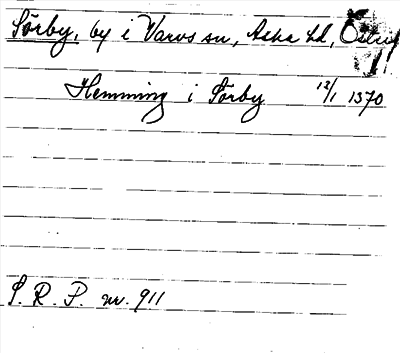 Sörby, by i Varvs sn, Aska hd,
Hemming i Sörby 12/1 1370
S. R. P. nr. 911